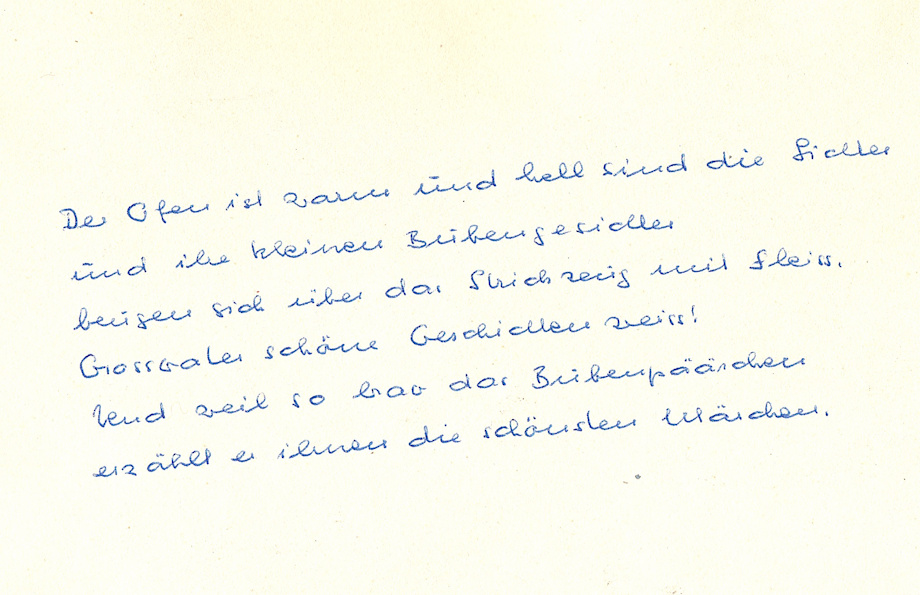 Der Ofen ist warm und hell sind die Lichter
und ihre kleinen Bubengesichter
beugen sich über das Strickzeug mit Fleiss.
Grossvater schöne Geschichten weiss!
Und weil so brav das Bubenpäärchen
erzählt er ihnen die schönsten Märchen.